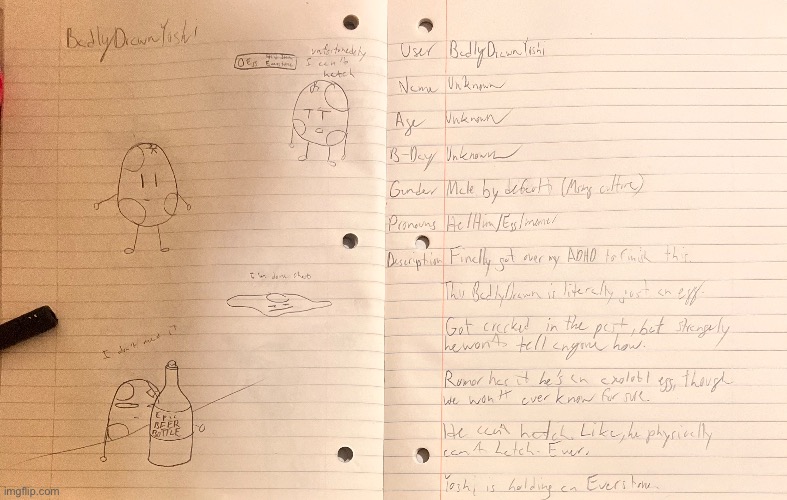 BadlyDrawnYoshi
unfortunately
I can't
hatch
I've done shots
I don't need it
Epic
BEER
BOTTLE
User BadlyDrawnYoshi
Name Unknown
Age Unknown
B-Day Unknown
Gender Male by default (Msmg culture)
Pronouns He/Him/Egg/memer
Description Finally got over my ADHD to finish this.
This BadlyDrawn is literally just an egg.
Got cracked in the past, but strangely
he won't tell anyone how.
Rumor has it he's an axolotl egg, though
we won't ever know for sure.
He can't hatch. Like, he physically
can't hatch. Ever.
Yoshi is holding an Everstone
imgflip.com